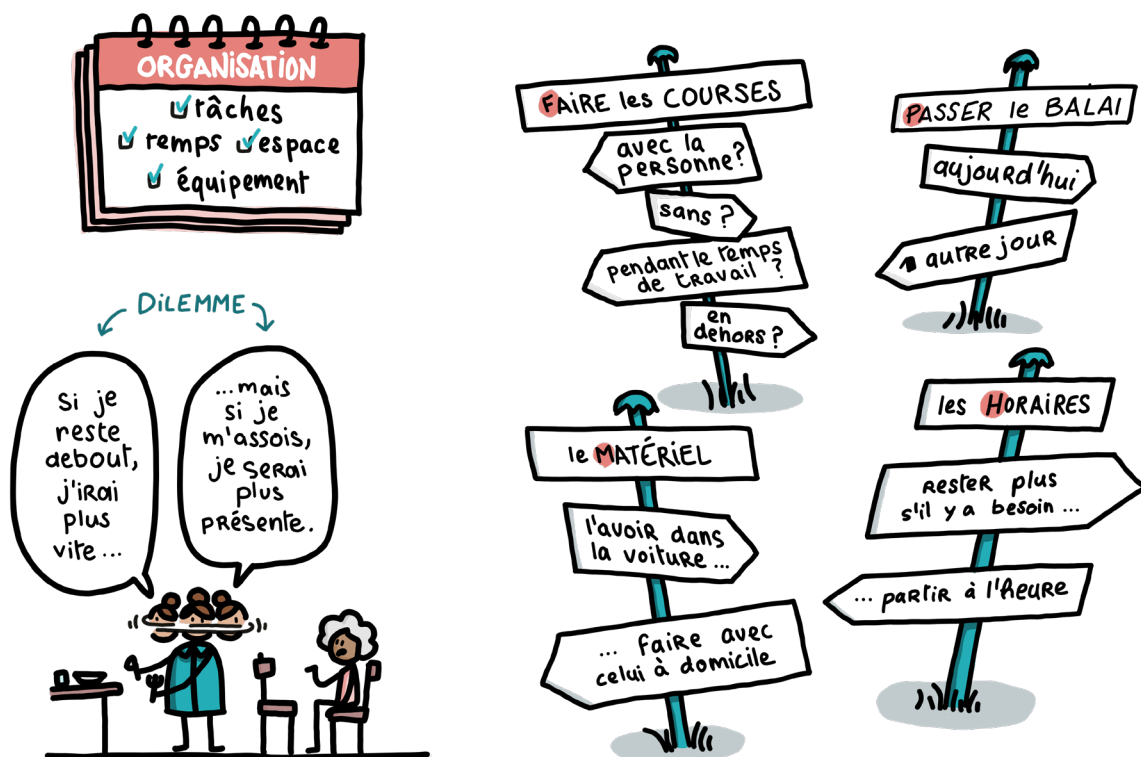 ORGANISATION
tâches
temps espace
équipement
DILEMME
Si je
reste
debout,
j'irai
plus
vite...
...mais
si je
m'assois,
je serai
plus
présente.
FAIRE les COURSES
avec la
personne?
sans ?
pendant le temps
de travail ?
en
dehors ?
PASSER le BALAI
aujourd'hui
1 autre jour
le MATÉRIEL
l'avoir dans
la voiture ...
... faire avec
celui à domicile
les HORAIRES
rester plus
s'il y a besoin ...
... partir à l'heure